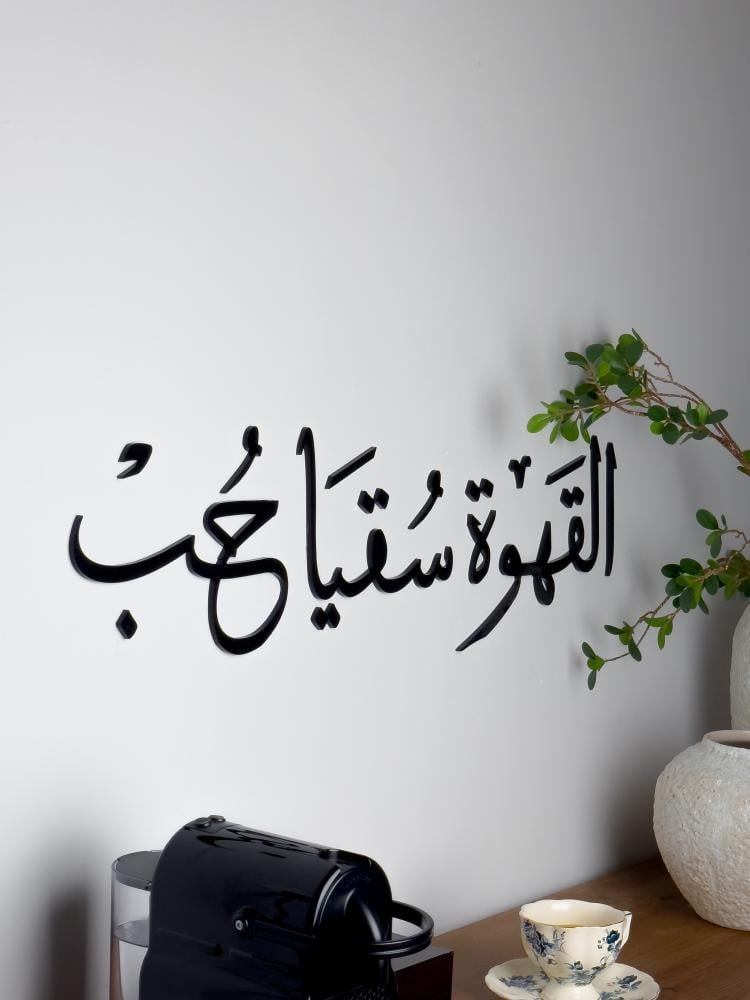 القَهوة سُقيَا حُبْ